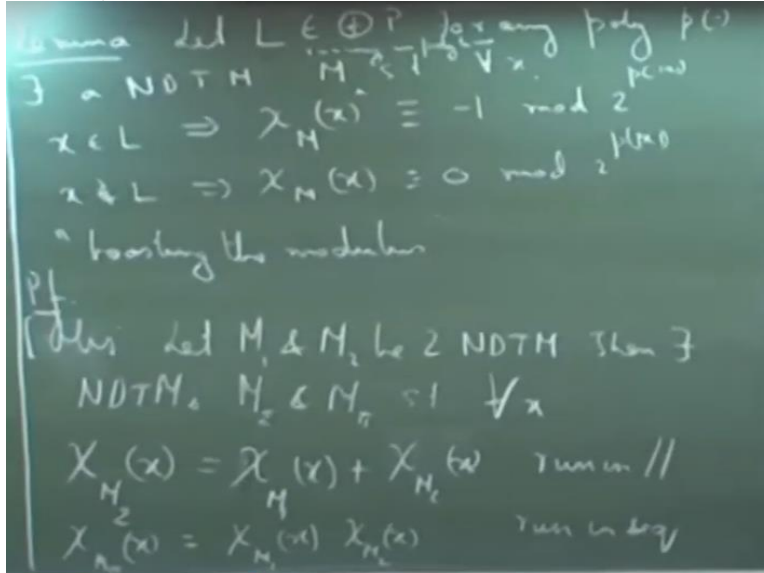 Lemma Let L ∈ ⊕P for any poly p(·)
∃ a NDTM M s.t ∀ x.
x ∈ L ⇒ χ_M(x) ≡ -1 mod 2^p(|x|)
x ∉ L ⇒ χ_M(x) ≡ 0 mod 2^p(|x|)
" boosting the modulus
Pf.
Let M_1 & M_2 be 2 NDTM Then ∃
NDTMs M_Σ & M_π s.t ∀x
χ_M_Σ(x) = χ_M_1(x) + χ_M_2(x) run in //
χ_M_π(x) = χ_M_1(x) χ_M_2(x) run in seq